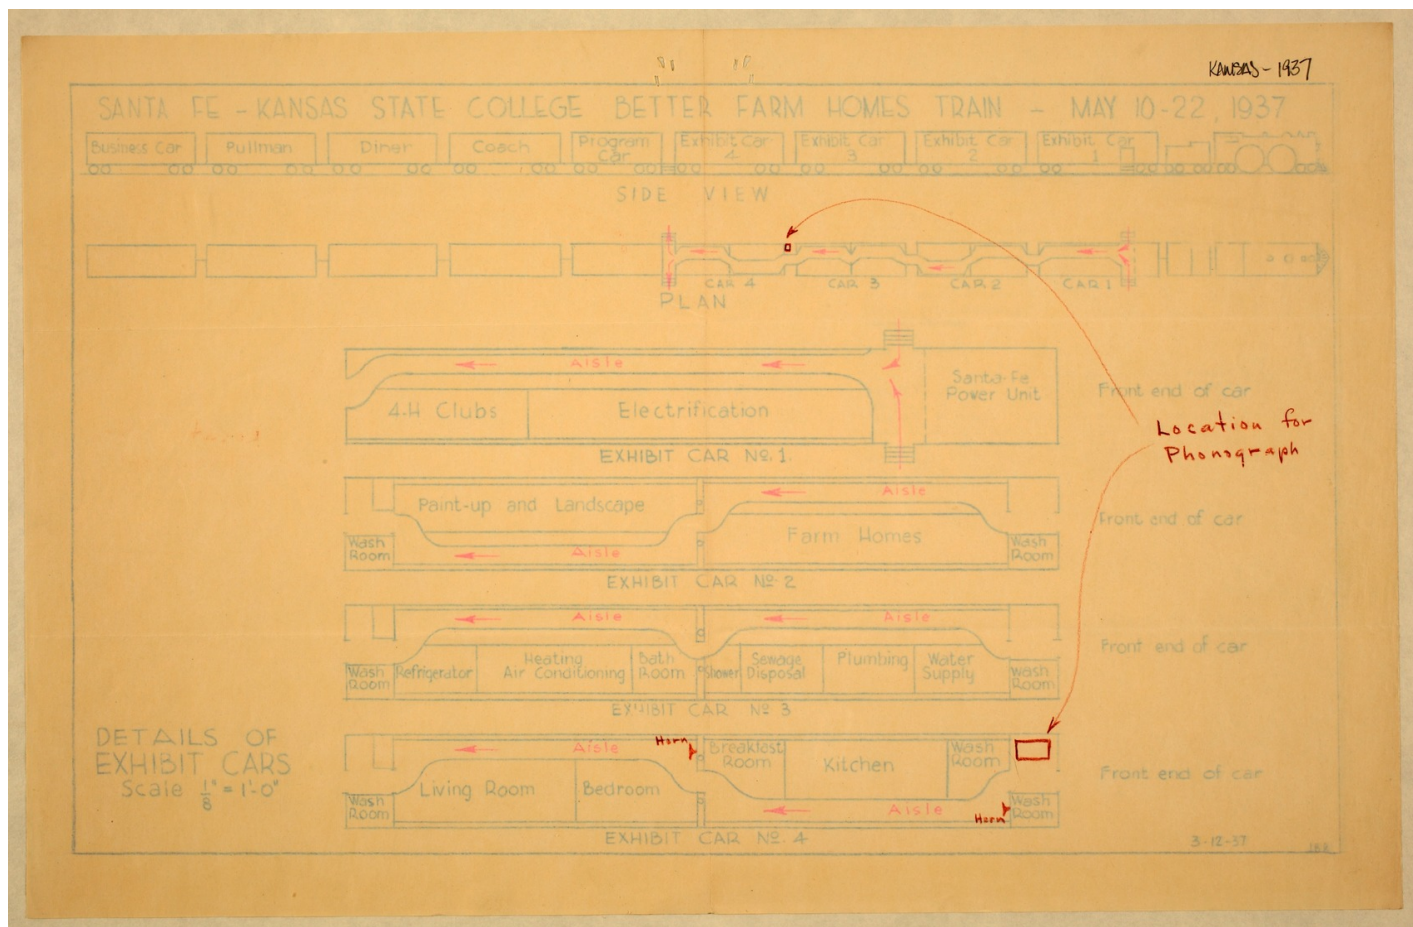 KANSAS - 1937
SANTA FE - KANSAS STATE COLLEGE BETTER FARM HOMES TRAIN - MAY 10-22, 1937
Business Car
Pullman
Diner
Coach
Program Car
Exhibit Car 4
Exhibit Car 3
Exhibit Car 2
Exhibit Car 1
SIDE VIEW
CAR 4
CAR 3
CAR 2
CAR 1
PLAN
Aisle
4-H Clubs
Electrification
Santa-Fe
Power Unit
Front end of car
Location for
Phonograph
EXHIBIT CAR No. 1.
Paint-up and Landscape
Aisle
Farm Homes
Front end of car
Wash
Room
Aisle
Wash
Room
EXHIBIT CAR No. 2
Aisle
Aisle
Wash
Room
Refrigerator
Heating
Air Conditioning
Bath
Room
Shower
Sewage
Disposal
Plumbing
Water
Supply
Wash
Room
Front end of car
EXHIBIT CAR No. 3
DETAILS OF
EXHIBIT CARS
Scale 1/8" = 1'-0"
Aisle
Horn
Breakfast
Room
Kitchen
Wash
Room
Living Room
Bedroom
Front end of car
Wash
Room
Aisle
Horn
Wash
Room
EXHIBIT CAR No. 4
3-12-37